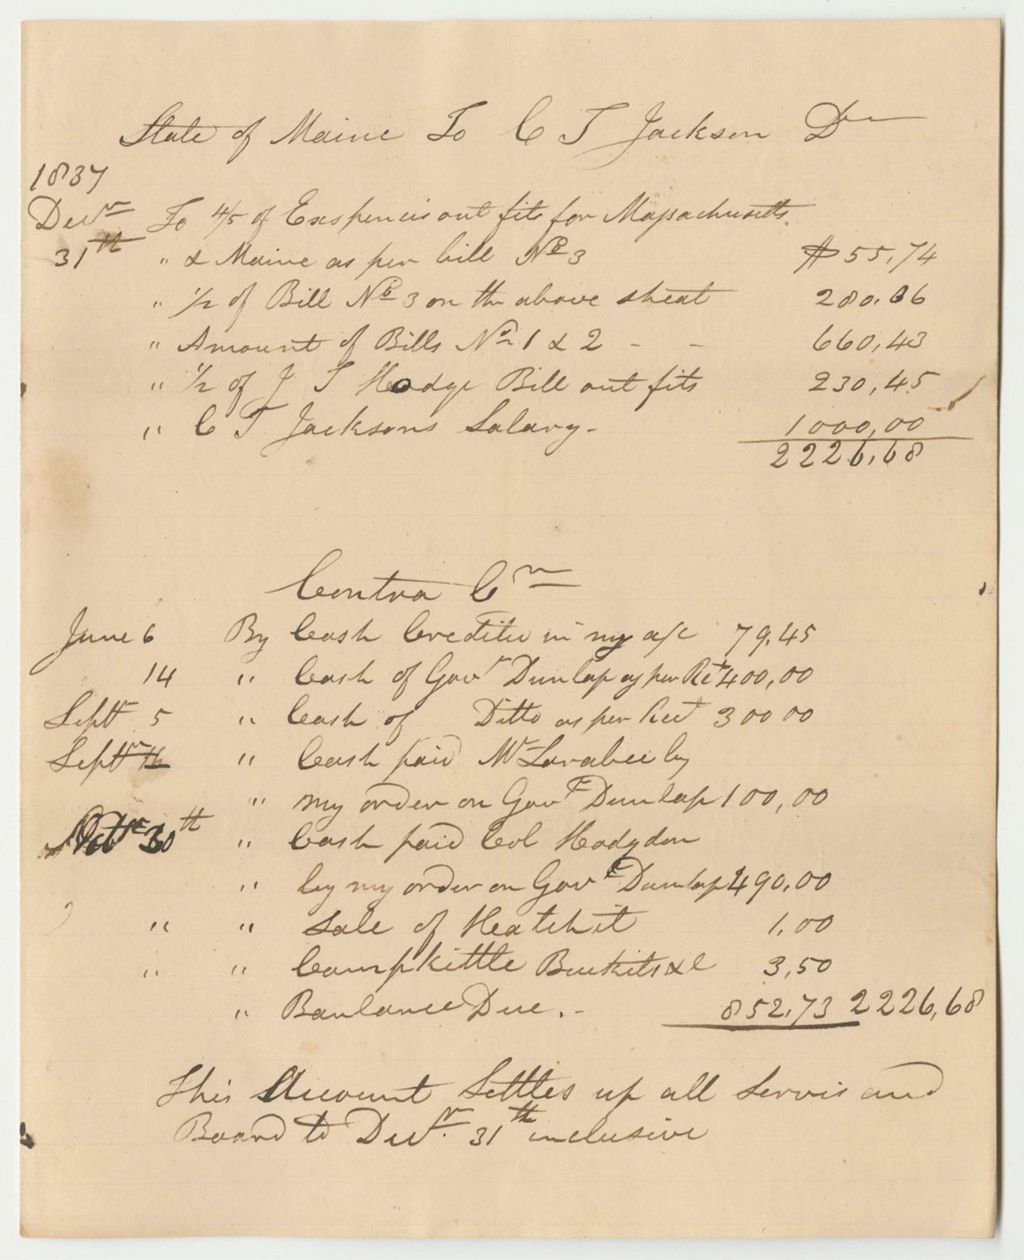 State of Maine To C T Jackson Dr
1837
Decr To 4/5 of Exspencis out fits for Massachusetts
31th " & Maine as per bill No 3 $55,74
" 1/2 of Bill No 3 on the above sheat 280,06
" Amount of Bills No 1 & 2 - - 660,43
" 1/2 of J T Hodge Bill out fits 230,45
" C T Jacksons Salary - 1000,00
2226,68
Contra Cr
June 6 By Cash Creditid in my a/c 79,45
14 " Cash of Govr Dunlap as per Rct 400,00
Septr 5 " Cash of Ditto as per Rect 300 00
Septr 16 " Cash paid Mr Larabee by
" my order on Govr Dunlap 100,00
30th " Cash paid Col Hodgdon
" by my order on Govr Dunlap 490,00
" " Sale of Heatchit 1,00
" " Campkittle Buckits &c 3,50
" Banlance Due. - 852,73 2226,68
This Account Settles up all Servis and
Board to Decr 31th inclusive